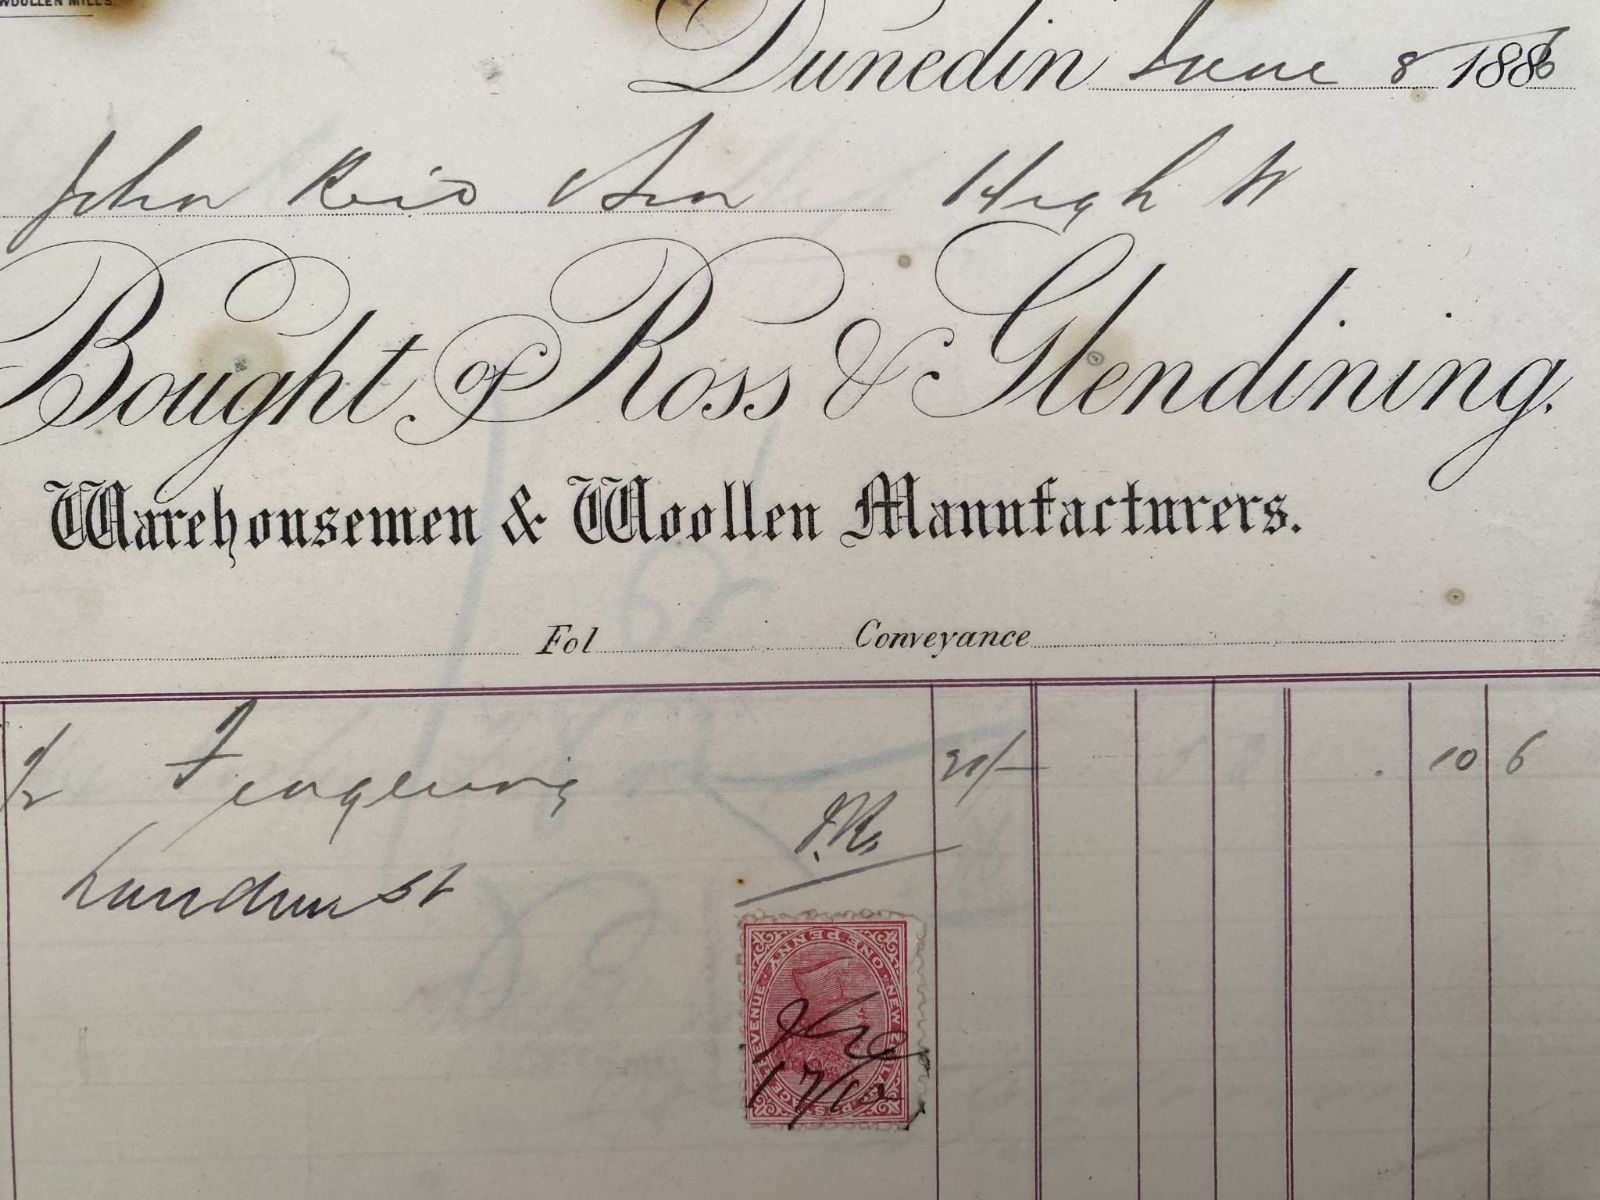 WOOLLEN MILLS.
Dunedin June 8 1886
John Reid & Son High St
Bought of Ross & Glendining.
Warehousemen & Woollen Manufacturers.
Fol Conveyance
1/2 21/- 10 6
J.R.
St
NEW ZEALAND POSTAGE & REVENUE ONE PENNY
17/12